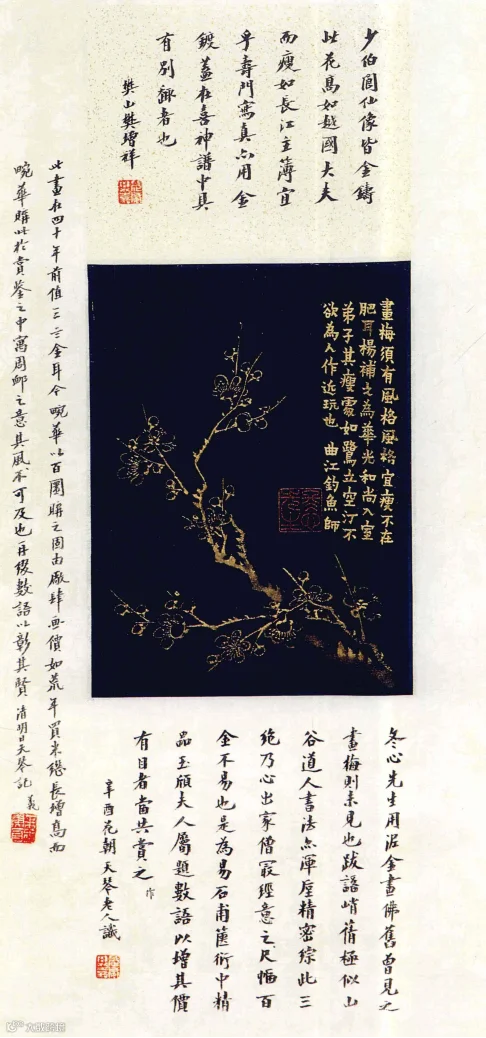 少伯圓仙像皆金鑄
此花高如越國大夫
而瘦如長江主簿宜
乎壽門寫真亦用金
鍍蓋在喜神譜中具
有別銜者也
樊山樊增祥
畫梅須有風格風格宜瘦不在
肥耳楊補之為華光和尚入室
弟子其瘦處如鷺立空汀不
欲為人作近玩也 曲江釣魚師
冬心先生用泥金畫佛舊曾見之
畫梅則未見也跋語峭蒨極似山
谷道人書法亦渾厚精密綜此三
絶乃心出家僧最經意之尺幅百
金不易也是為易石甫篋衍中精
品玉頎夫人屬題數語以增其價
有目者當共賞之
作
辛酉花朝天琴老人識
此畫在四十年前值三二金耳今畹華以百圜購之固由廠肆畫價如荒年買米總長增高而
畹華購此於賞鑒之中寓周卹之意其風不可及也再綴數語以彰其賢 清明日天琴記
義
大成跨境